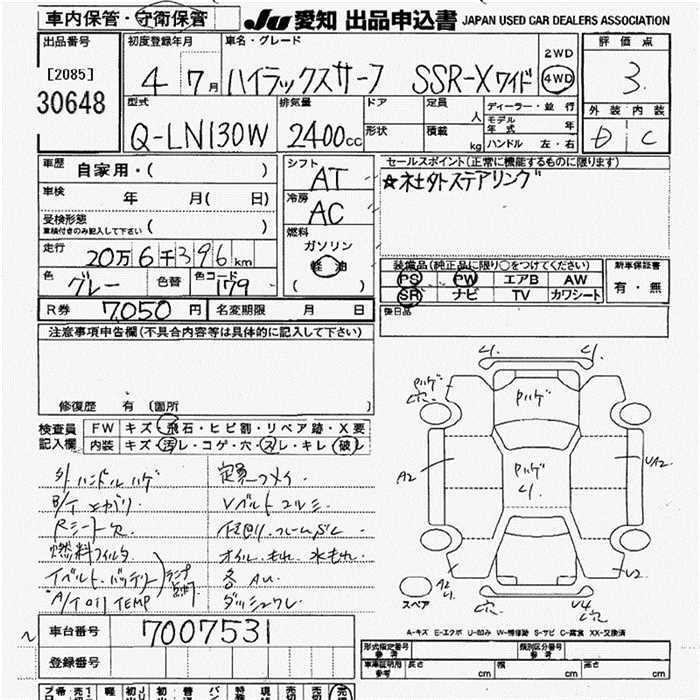 車内保管・守衛保管
JU 愛知 出品申込書 JAPAN USED CAR DEALERS ASSOCIATION
出品番号
[2085]
30648
初度登録年月
4 7月
車名・グレード
ハイラックスサーフ SSR-Xワイド
2WD
4WD
評価点
3
外装 内装
D C
型式
Q-LN130W
排気量
2400cc
ドア
形状
定員 人
積載 kg
ディーラー・並行
モデル年式 年
ハンドル 左・右
車歴 自家用・( )
車検 年 月( 日)
受検形態
車検付きのみ記入して下さい ( )
走行 20万6千396km
色 グレー 色替 色コード 179
シフト
AT
冷房
AC
燃料
ガソリン
軽油
( )
セールスポイント(正常に機能するものに限ります)
☆社外ステアリング
装備品(純正品に限り○をつけてください)
PS PW エアB AW
SR ナビ TV カワシート
新車保証書
有・無
後日品
R券 7,050円 名変期限 月 日
注意事項申告欄(不具合内容等は具体的に記入して下さい)
修復歴 有 (箇所
検査員記入欄
FW キズ・飛石・ヒビ割・リペア跡・X要
内装 キズ・汚レ・コゲ・穴・スレ・キレ・破レ
外ハンドルハゲ
Rシート穴
燃料フィルタ
Tベルト.バッテリ
A/T OIl TEMP
Vベルト
オイル.もれ.水もれ.
各AU.
ダッシュワレ
ハゲ
ハゲ
ハゲ
A2
UA2
U2
U4
穴
スペア
A-キズ E-エクボ U-凹み W-補修跡 S-サビ C-腐食 XX-交換済
車台番号 7007531
登録番号
形式指定番号
参考
類別区分番号
車庫証明用
参考
長さ cm 幅 cm 高さ cm